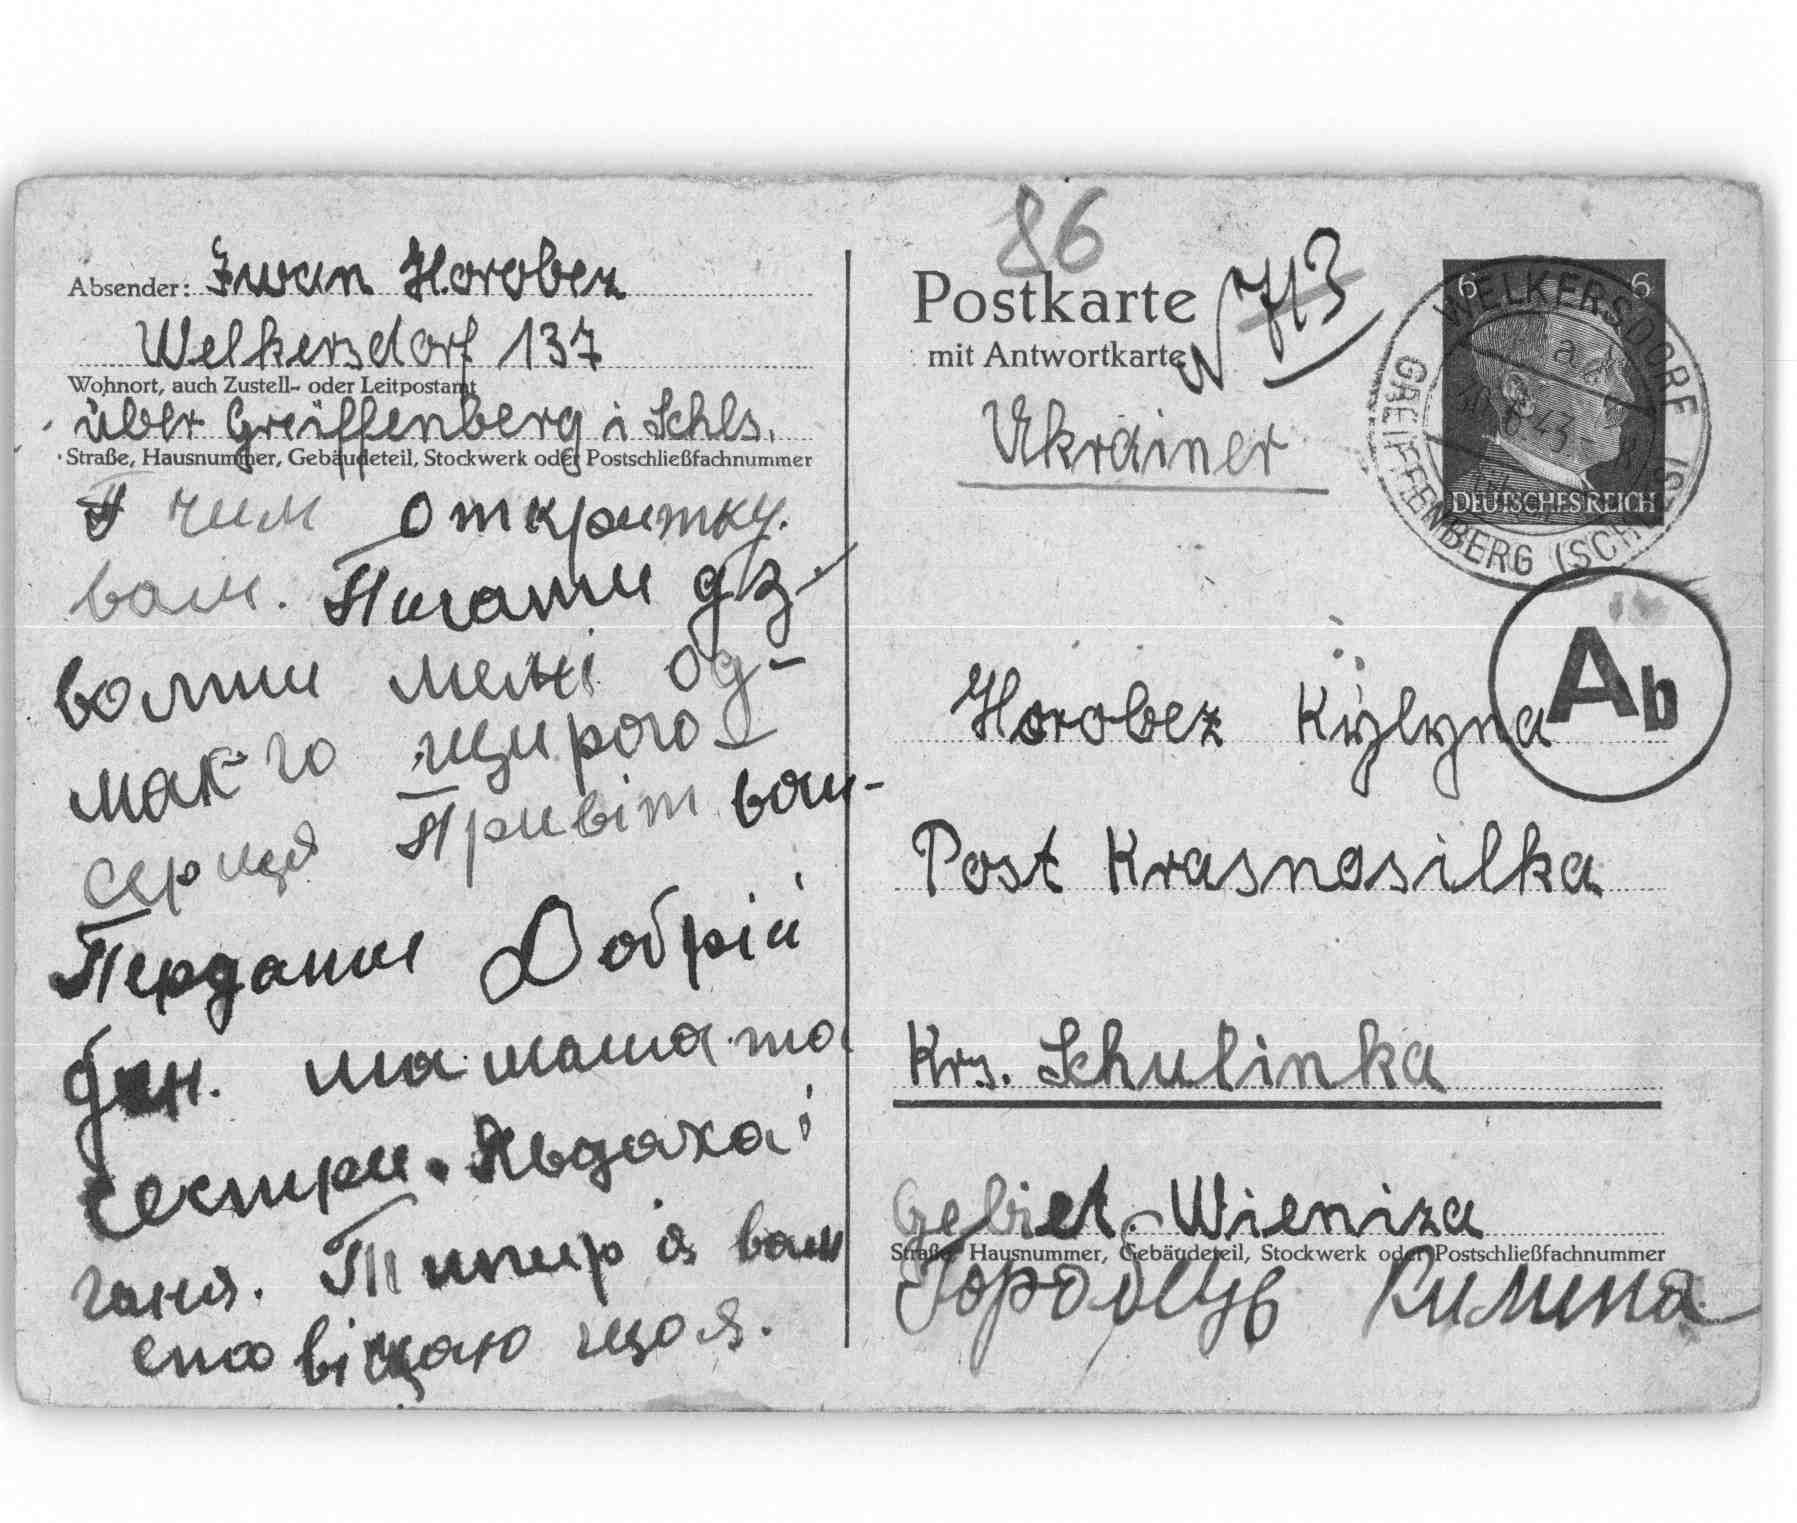 Absender: Iwan Horobez
Welkersdorf 137
Wohnort, auch Zustell- oder Leitpostamt
über Greiffenberg i Schls.
Straße, Hausnummer, Gebäudeteil, Stockwerk oder Postschließfachnummer
чим откритку.
вам. Писати дз.
волти мені од-
мак го щирого
серця Привіт вам-
Пердати Добрій
ден. мамаша та
сестри. Явдоха і
ганя. Типир я вам
спо віщаю що я.
86
Postkarte 713
mit Antwortkarte
Ukrainer
6 6
DEUTSCHES REICH
WELKERSDORF
GREIFFENBERG (SCHLES)
Ab
Horobez Kylyna
Post Krasnosilka
Krs. Schulinka
Gebiet. Wieniza
Straße, Hausnummer, Gebäudeteil, Stockwerk oder Postschließfachnummer
Горобець Килина